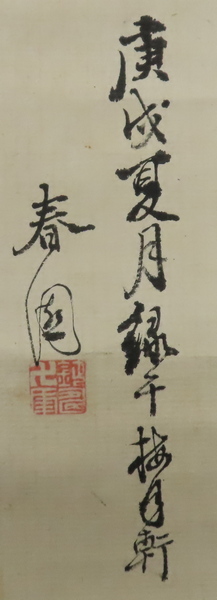 庚戌夏月録于梅月軒
春園